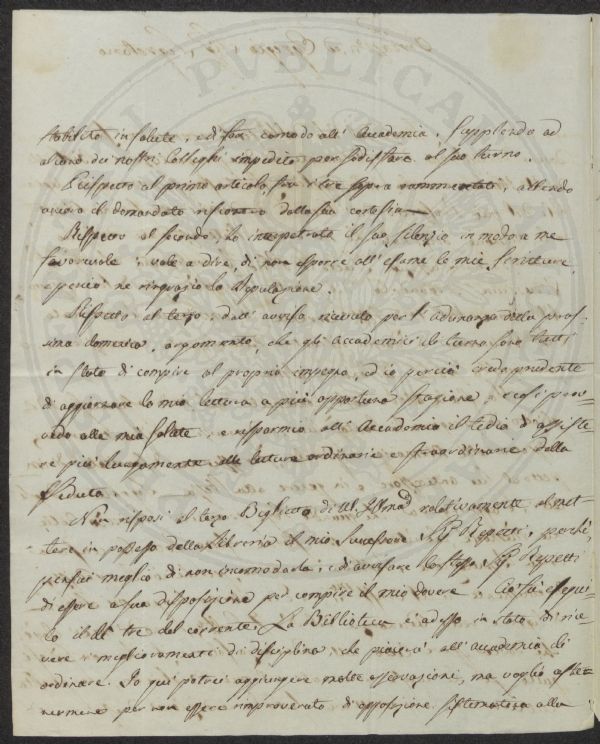 stabilito in salute, e di far comodo all' Accademia, supplendo ad
alcuno dei nostri Colleghi impedito per sodisfare al suo turno.
Rispetto al primo articolo, fra i tre sopra rammentati, attendo
ancora il domandato riscontro dalla sua cortesia
Rispetto al secondo, ho interpetrato il suo silenzio in modo a me
favorevole; vale a dire, di non esporre all' esame le mie scritture,
e perciò ne ringrazio la Deputazione.
Rispetto al terzo, dall' avviso ricevuto per l' adunanza della pros=
sima domenica, argomento, che gli Accademici di turno sono tutti
in stato di compire al proprio impegno, ed io perciò credo prudente
di aggiornare la mia lettura a più opportuna stagione, e così prov=
vedo alla mia salute, e risparmio all' Accademia il tedio d' assiste=
re più lungamente alle letture ordinarie e straordinarie della
Seduta.
Non risposi al terzo Biglietto di relativamente al met=
tere in possesso della Libreria il mio Successore Repetti, perchè
pensai meglio di non incomodarla, e di avvisare lo stesso Repetti
di essere a sua disposizione per compire il mio dovere. Ciò fu esegui=
to il dì tre del corrente. La Biblioteca è adesso in stato di rice=
vere i miglioramenti di disciplina che piacerà all' accademia di
ordinare. Io quì potrei aggiungere molte osservazioni, ma voglio aste=
nermene per non essere rimproverato di opposizione sistematica alla
PUBLICA